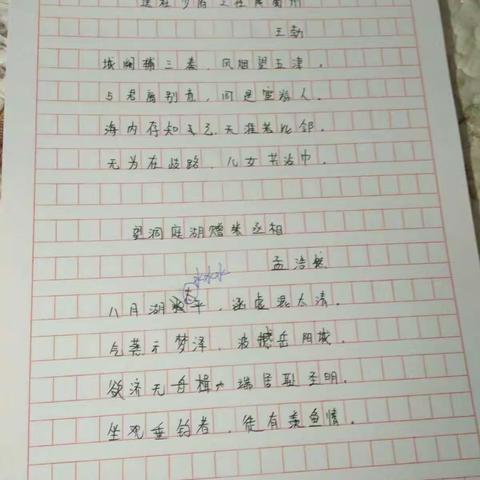 送杜少府之任蜀州
王勃
城阙辅三秦，风烟望五津。
与君离别意，同是宦游人。
海内存知己，天涯若比邻。
无为在歧路，儿女共沾巾。
望洞庭湖赠张丞相
孟浩然
水水水
八月湖水平，涵虚混太清。
气蒸云梦泽，波撼岳阳城。
欲济无舟楫，端居耻圣明。
坐观垂钓者，徒有羡鱼情。